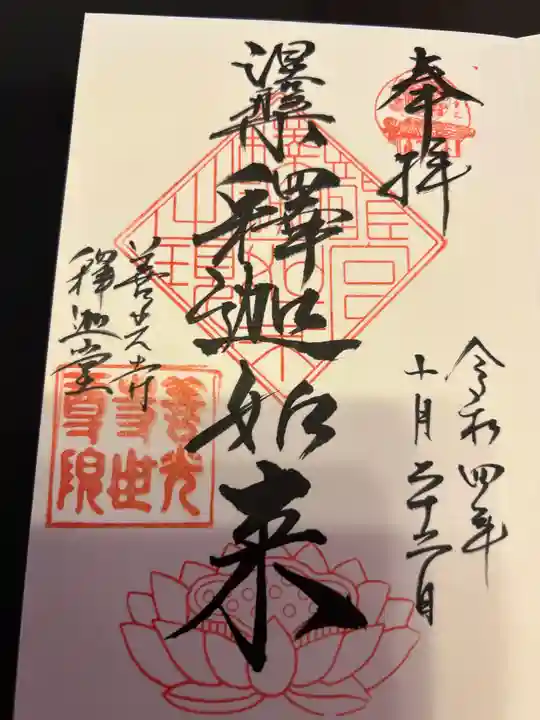 奉拝
令和四年
十月二十二日
涅槃釋迦如来
善光寺
釋迦堂
善光
寺世
尊院